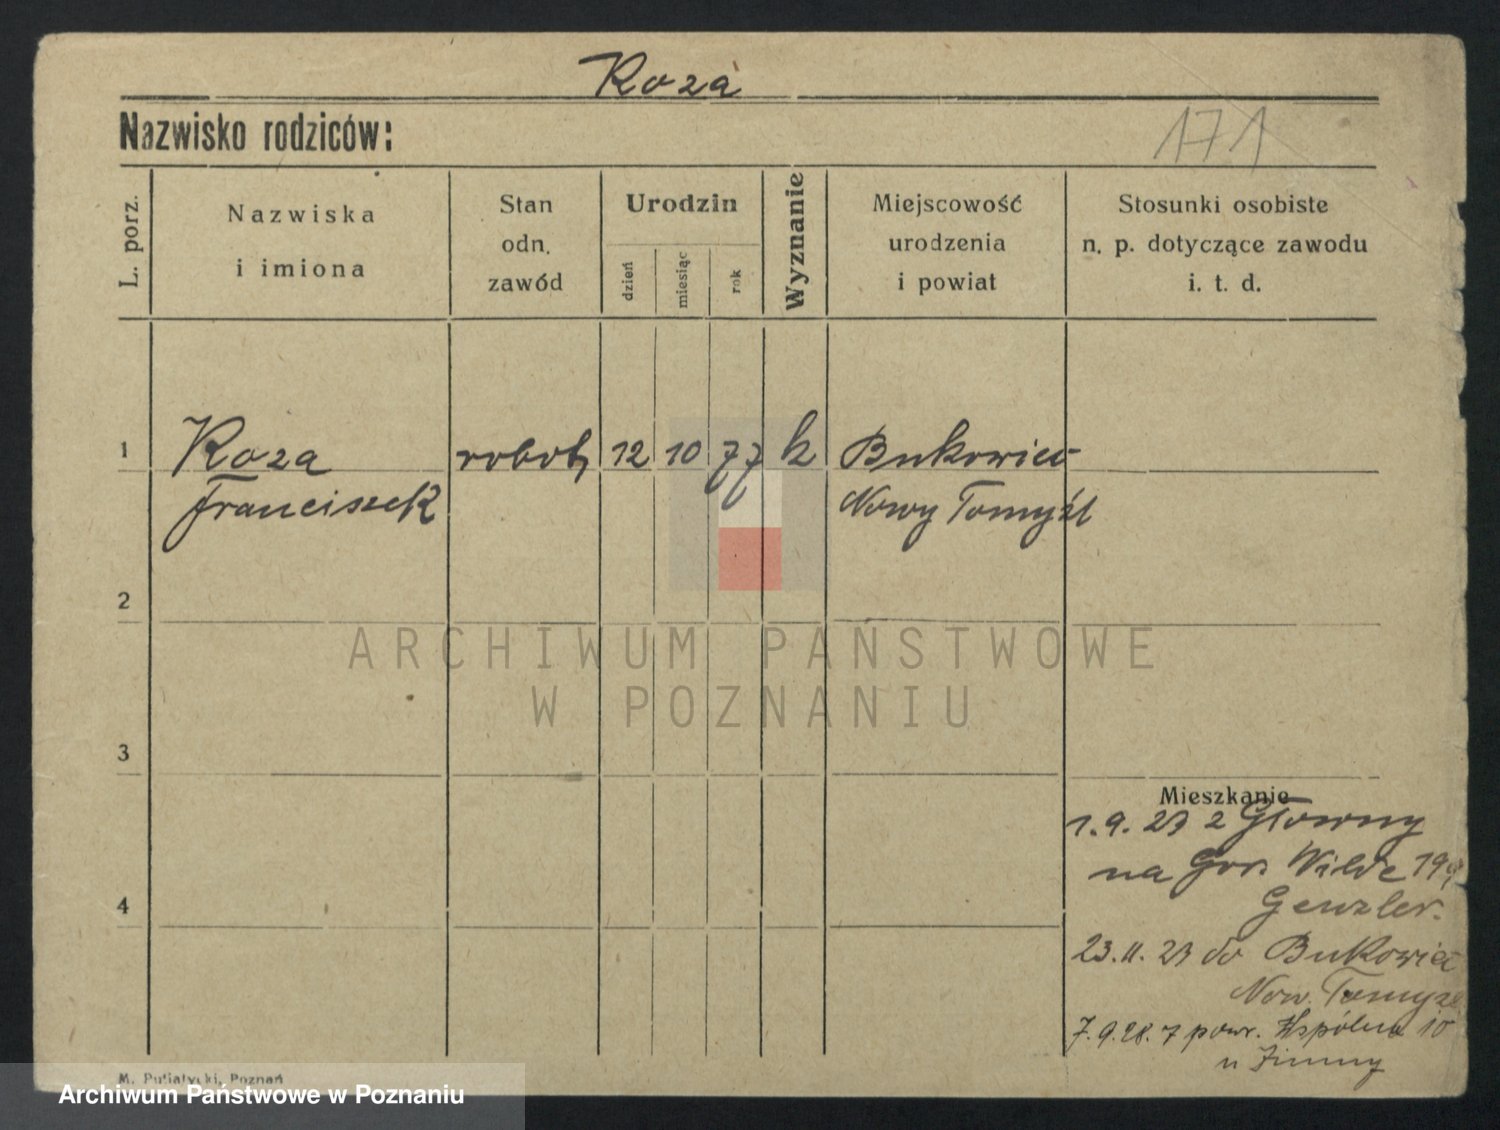 Roza
Nazwisko rodziców:
171
L. porz.
Nazwiska
i imiona
Stan
odn.
zawód
Urodzin
dzień
miesiąc
rok
Wyznanie
Miejscowość
urodzenia
i powiat
Stosunki osobiste
n. p. dotyczące zawodu
i. t. d.
1 Roza robot, 12 10 77 k Bukowiec
Franciszek Nowy Tomyśl
2
ARCHIWUM PAŃSTWOWE
W POZNANIU
3
Mieszkanie
1.9.23 z Główny
na Gór. Wilde 199
Genzler.
4
23.11.23 do Bukowiec
Now. Tomyśl
7.9.28. powr. Wspólna 10
u Zimny
M. Putiatycki, Poznań
Archiwum Państwowe w Poznaniu